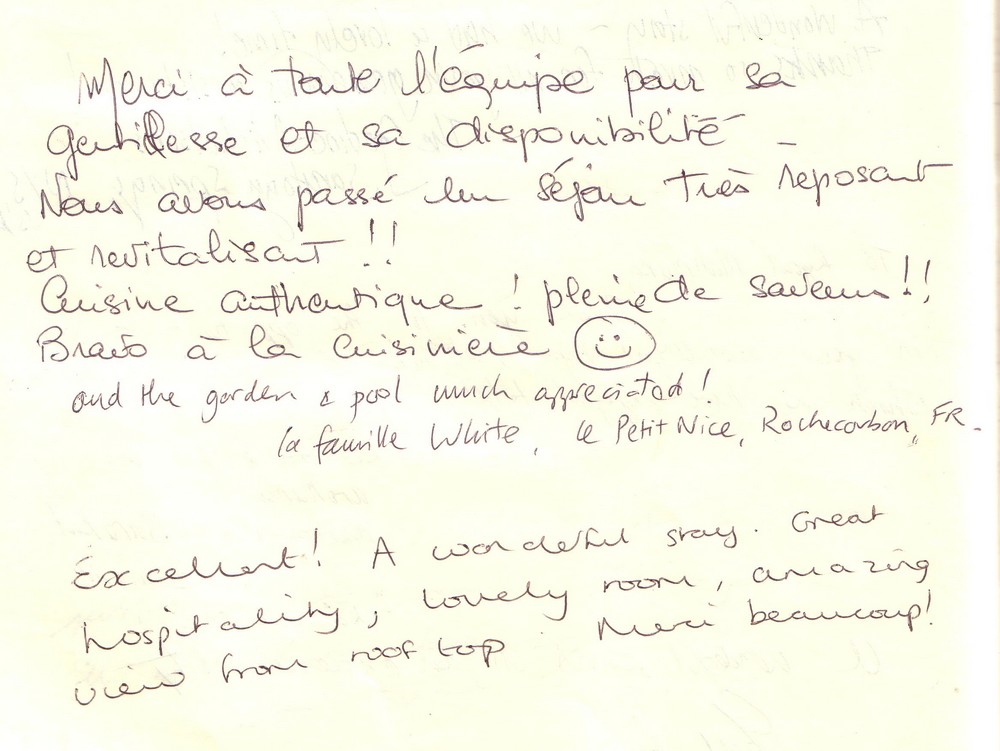 Merci à toute l'équipe pour sa
gentillesse et sa disponibilité -
Nous avons passé un séjour très reposant
et revitalisant !!
Cuisine authentique ! pleine de saveurs !!
Bravo à la Cuisinière
and the garden & pool much appreciated !
la famille White, le Petit Nice, Rochecorbon, FR.
Excellent! A wonderful stay. Great
hospitality, lovely room, amazing
view from roof top. Merci beaucoup!